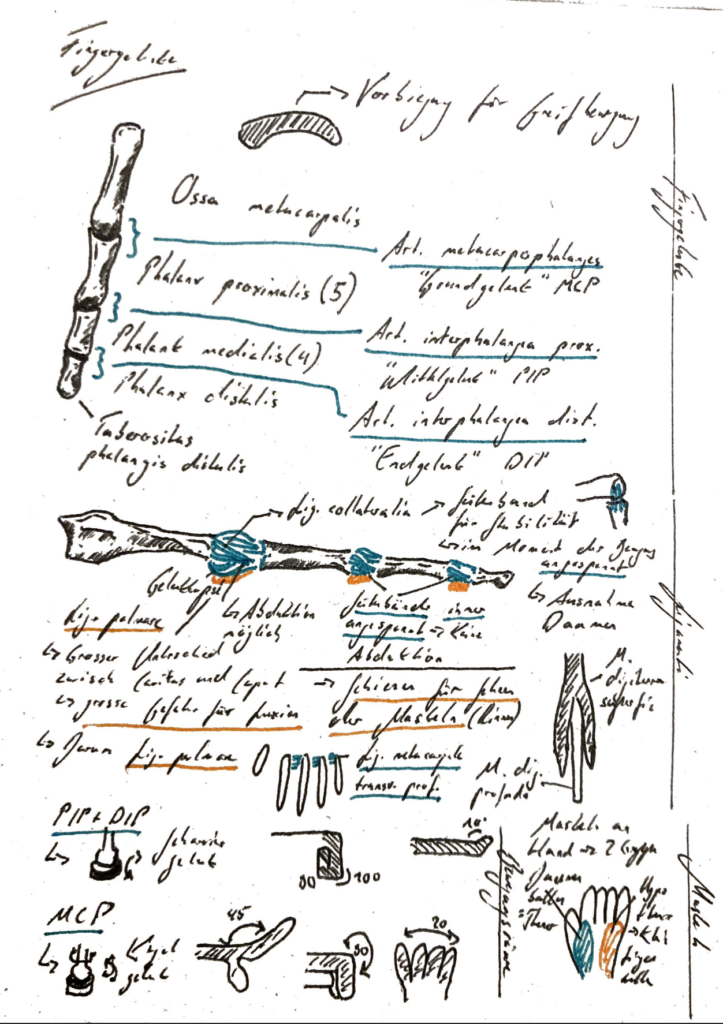 Fingergelenke
→ Vorbiegung für Greifbewegung
Ossa metacarpalis
Art. metacarpophalanges
"Grundgelenk" MCP
Phalanx proximalis (5)
Art. interphalangea prox.
"Mittelgelenk" PIP
Phalanx medialis (4)
Phalanx distalis
Art. interphalangea dist.
"Endgelenk" DIP
Tuberositas
phalangis distalis
Fingergelenke
Lig. collateralia → Seitenband
für Stabilität
↳ im Moment der Beugung
angespannt
↳ Ausnahme
Daumen
Gelenkkapsel
↳ Abduktion
möglich
Seitenbänder immer
angespannt → Keine
Abduktion
Lig. palmare
↳ Grosser Unterschied
zwisch Cavitas und Caput
→ grosse Gefahr für
↳ Darum Lig. palmare
→ Schienen für Sehnen
der Muskeln
Lig. metacarpale
transv. prof.
M.
digitorum
superfic
M. dig.
profundus
PIP + DIP
↳ Scharnier
gelenk
90 100
10°
MCP
↳ Kugel
gelenk
45
90
20
Bewegungsräume
Muskeln an
Hand → 2 Gruppen
Daumen
ballen
=Thenar
Hypo
thenar
→ Klei
finger
Muskeln